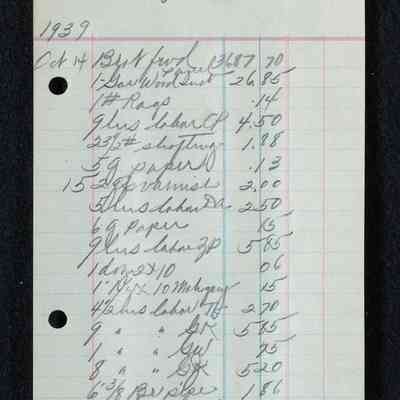 1939
Oct 14 Brot fwd 13687 70
26.85
1# Rags .14
9 hrs labor 4.50
23 1/2# shafting 1.88
5 g paper .13
15 2 varnish 2.00
5 hrs labor 2.50
6 g Paper 15
9 hrs labor 585
1 doz 2x10 06
10 Mahogany 15
4 1/2 hrs labor 270
9 " " GK 585
1 " " GW 75
8 " " GK 520
6 3/8 Br pipe 1 86